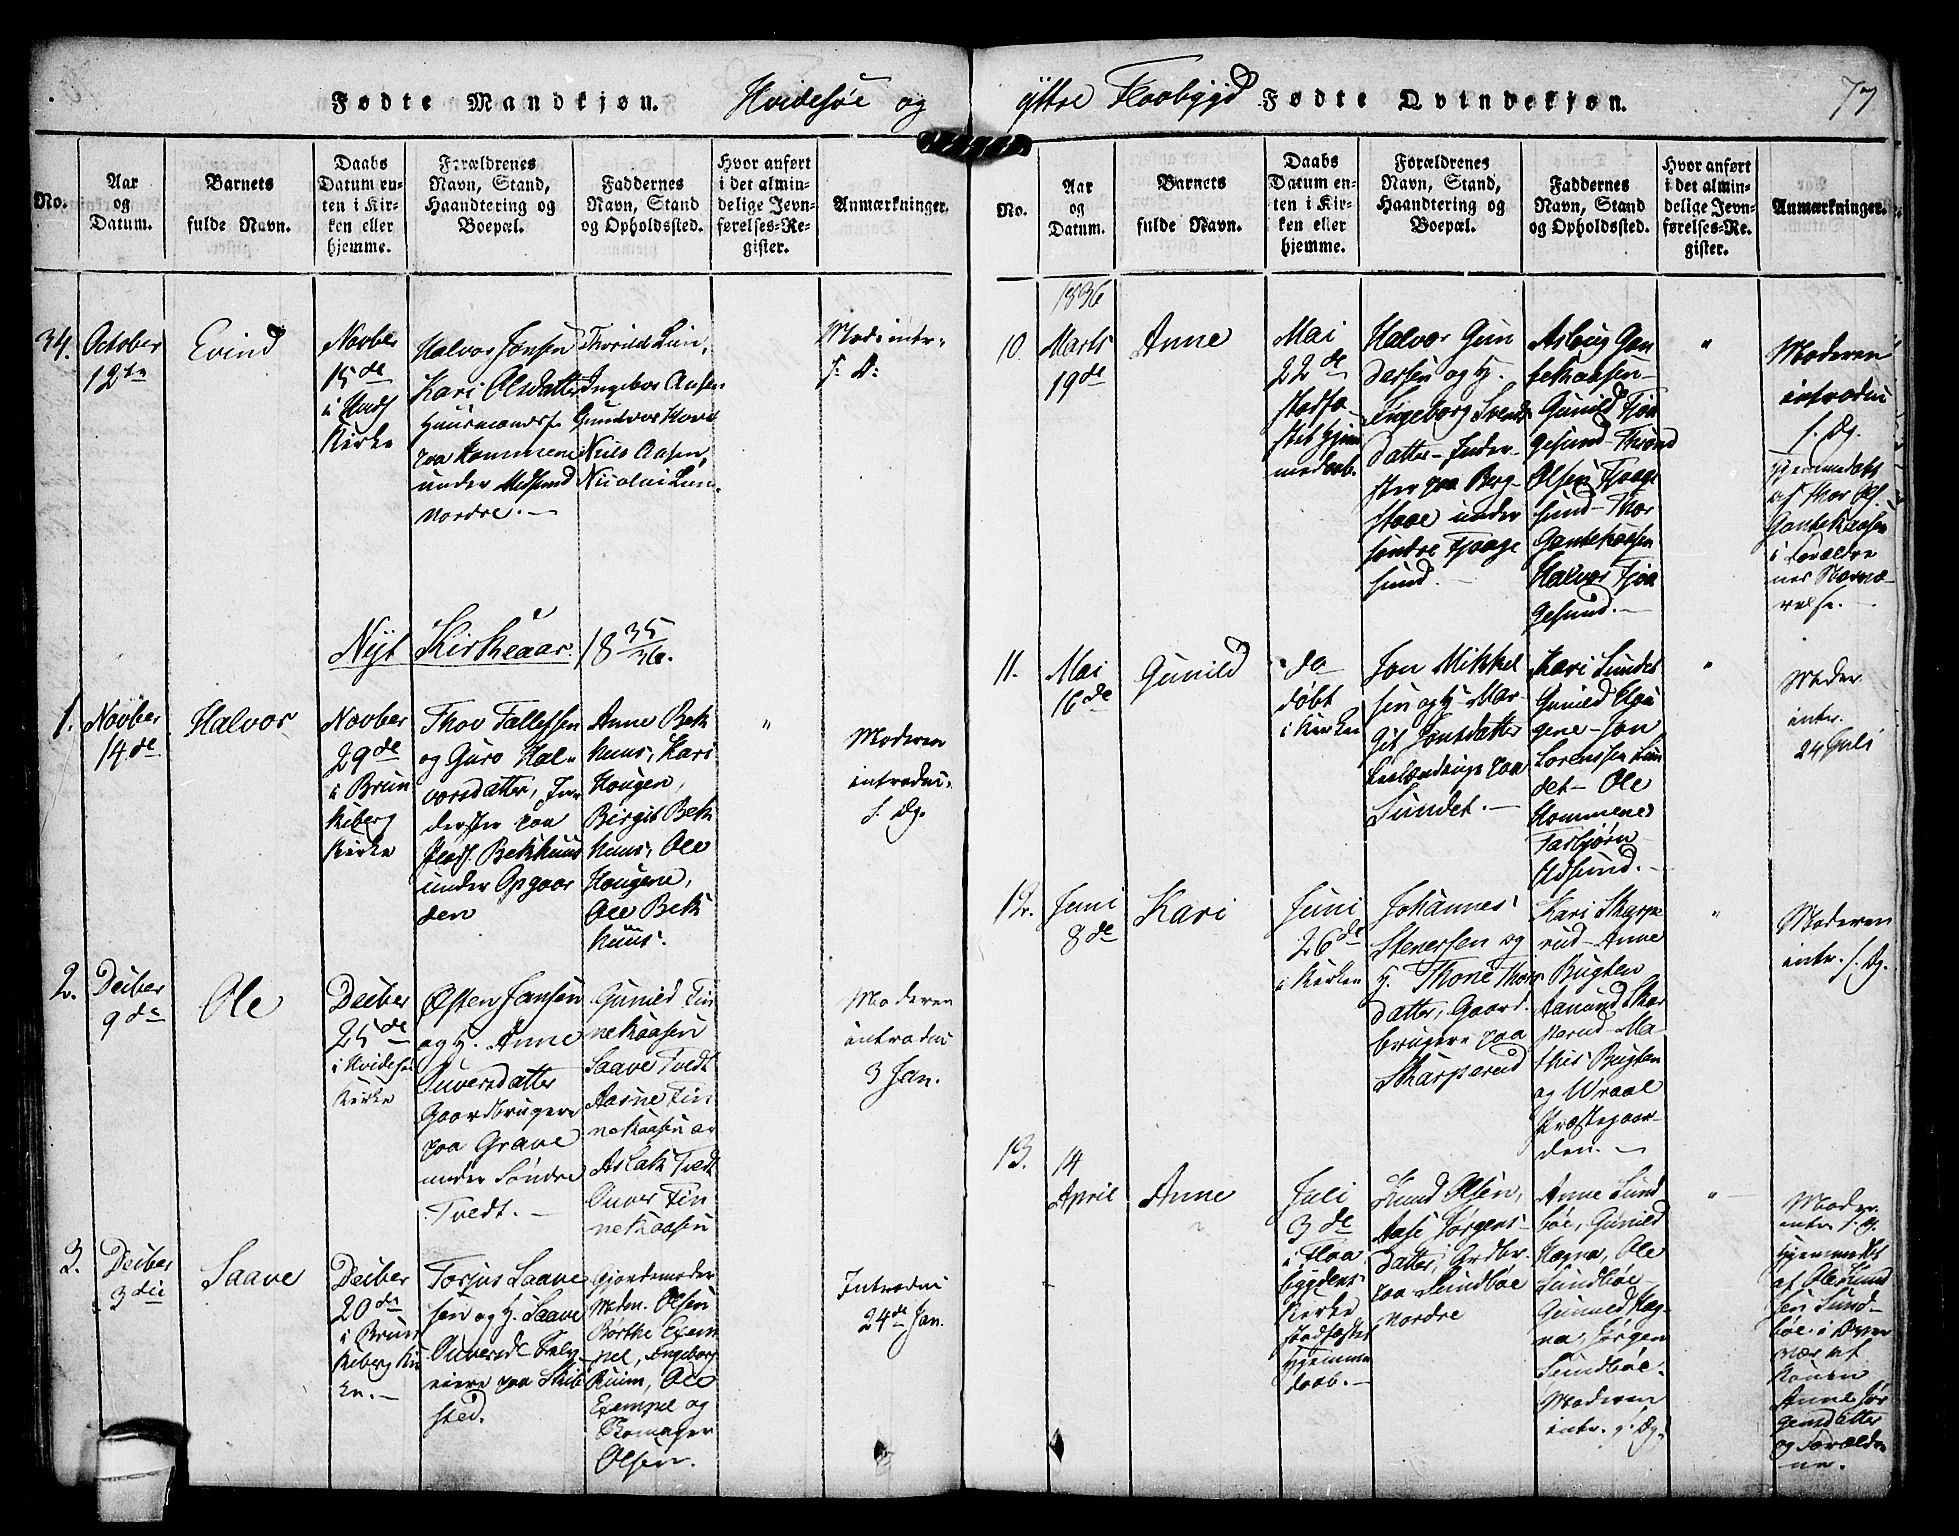 Fødte Mandkjøn.
Hvidesøe og
No.
Aar
og
Datum.
Barnets
fulde Navn.
Daabs
Datum en-
ten i Kir-
ken eller
hjemme.
Forældrenes
Navn, Stand,
Haandtering og
Boepæl.
Faddernes
Navn, Stand
og Opholdssted.
Hvor anført
i det almin-
delige Jevn-
førelses-Re-
gister.
Anmærkninger.
34.
October
12te
Evind
Novber
15de
i Hvids
Kirke
Halvor Jonsen
Kari Olsdatter
Huusmandsf.
paa Kommene
under
Nordre. —
Thorild Lun,
Ingebor Aasen
Gundvor
Niels Aasen,
Nicolai Lun.
Mod: intr.
f. D:
Nyt Kirkeaar. 18 35/36.
1.
Novber
14de
Halvor
Novber
29de
i Brun
keberg
Kirke
Thov Tallefsen
og Guro Hal-
vorsdatter, In-
derster paa
Plads. Bekhuus
under Opgaar
den
Anne Bek
huus, Kari
Haugen,
Birgit Bek
huus, Ole
Haugene,
Ole Bek
huus.
"
Moderen
introdu.
s. Dg.
2.
Decber
9de
Ole
Decber
25de
i Hvides
Kirke
Østen Jansen
og H. Anne
Ouversdatter
Gaardbrugere
paa Grave
under Søndre
Tvedt. —
Gunild Fin
nekaasen
Saave Tvedt
Aasne Fin
nekaasen
Aslak Tvedt
Ouver Fin
nekaasen
Moderen
introdu
3 Jan.
3.
Decber
3die
Saave
Decber
20de
i Brun
keberg Kir
ke. —
Torjus Saave
sen og H. Saave
Ouversd.
eiere paa Skib
sted.
Gjordemoder
Madm. Olsen
Børthe Exem
pel, Ingeborg
Kuim, Ole
Exempel og
Olsen.
Introdu
24de Jan.
yttre Flaabygd
Fødte Qvindekjøn.
77
No.
Aar
og
Datum.
Barnets
fulde Navn.
Daabs
Datum en-
ten i Kir-
ken eller
hjemme.
Forældrenes
Navn, Stand,
Haandtering og
Boepæl.
Faddernes
Navn, Stand
og Opholdssted.
Hvor anført
i det almin-
delige Jevn-
førelses-Re-
gister.
Anmærkninger.
1836
10
Marts
19de
Anne
Mai
22de
stadfæ
stet hjem
medaab.
Halvor Gun
dersen og H.
Ingeborg Svends
datter — Inder-
ster paa Berg-
staae under
søndre Fjaage
sund. —
Aslaug Gan
tekaasen —
Gunild Fjaa
gesund — Thrond
Olsen Fjaage
sund — Thor
Gantekaasen
Halvor Fjaa
gesund. —
"
Moderen
introdu
s. Dg.
hjemmedøbt
af Thor Ols.
Gantekaasen
i Forældre
nes Nærvæ
relse. —
11.
Mai
16de
Gunild
do
døbt
i Kirken
Jon Mikkel
sen og H. Mar
git Jonsdatter
paa
Sundet. —
Kari Sundet
Gunild Hau
gene — Jon
Lorenssen Sun
det — Ole
Kommene
Tarbjørn
"
Moder.
intr.
24 Juli
12.
Juni
8de
Kari
Juni
26de
i Kirken
Johannes
Stenersen og
H. Thone Thors
datter, Gaard
brugere paa
Skarperud
Kari Skarpe
rud — Anne
Bugten
Aamund Skar
perud — Ma-
this Bugten
og Wraal
Præstegaar-
den. —
"
Moderen
intr. s. Dg.
13.
14
April
Anne
Juli
3de
i Flaa
bygdens
Kirke
stadfæstet
hjemme
daab. —
Knud Olsen,
Aase Jørgens-
datter, Grdbr.
paa Sundbøe
Nordre
Anne Sund
bøe, Gunild
Hægna, Ole
Sundbøe —
Gunild Hæg-
na, Jørgen
Sundbøe.
Moderen
intr. s. Dg.
"
Moder.
intr. s. D.
hjemmedøbt
af Ole Knud
sen Sund-
bøe i Overv
vær af
Konen
Anne Jør
gensdatter
og Forældre
ne.